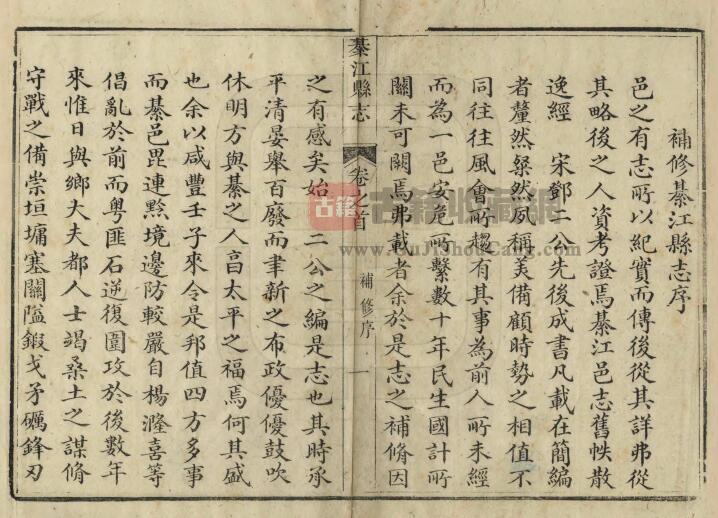 補修綦江縣志序
邑之有志所以紀實而傳後從其詳弗從
其略後之人資考證焉綦江邑志舊帙散
逸經 宋鄧二公先後成書凡載在簡編
者釐然粲然夙稱美備顧時勢之相值不
同往往風會所趨有其事為前人所未經
而為一邑安危所繫數十年民生國計所
關未可闕焉弗載者余於是志之補脩因
綦江縣志
卷之首
補修序
一
之有感矣始 二公之編是志也其時承
平清晏舉百廢而聿新之布政優優鼓吹
休明方與綦之人亯太平之福焉何其盛
也余以咸豐壬子來令是邦值四方多事
而綦邑毘連黔境邊防較嚴自楊漋喜等
倡亂於前而粤匪石逆復圍攻於後數年
來惟日與鄉大夫都人士竭桑土之謀脩
守戰之備崇垣墉塞關隘鍜戈矛礪鋒刃
古籍
古籍收藏網
www.GuJiShouCang.com